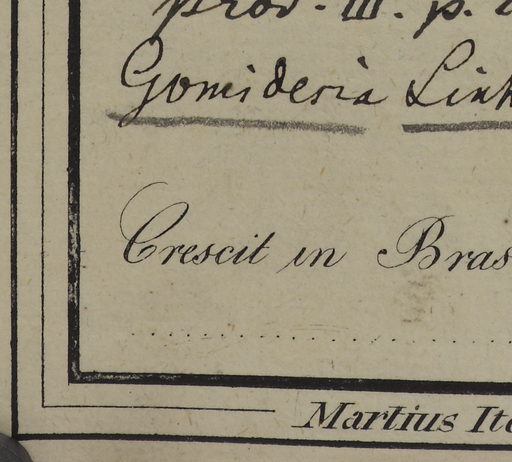 prod. III. p.
Gomidesia Link
Crescit in Bras
Martius Ite